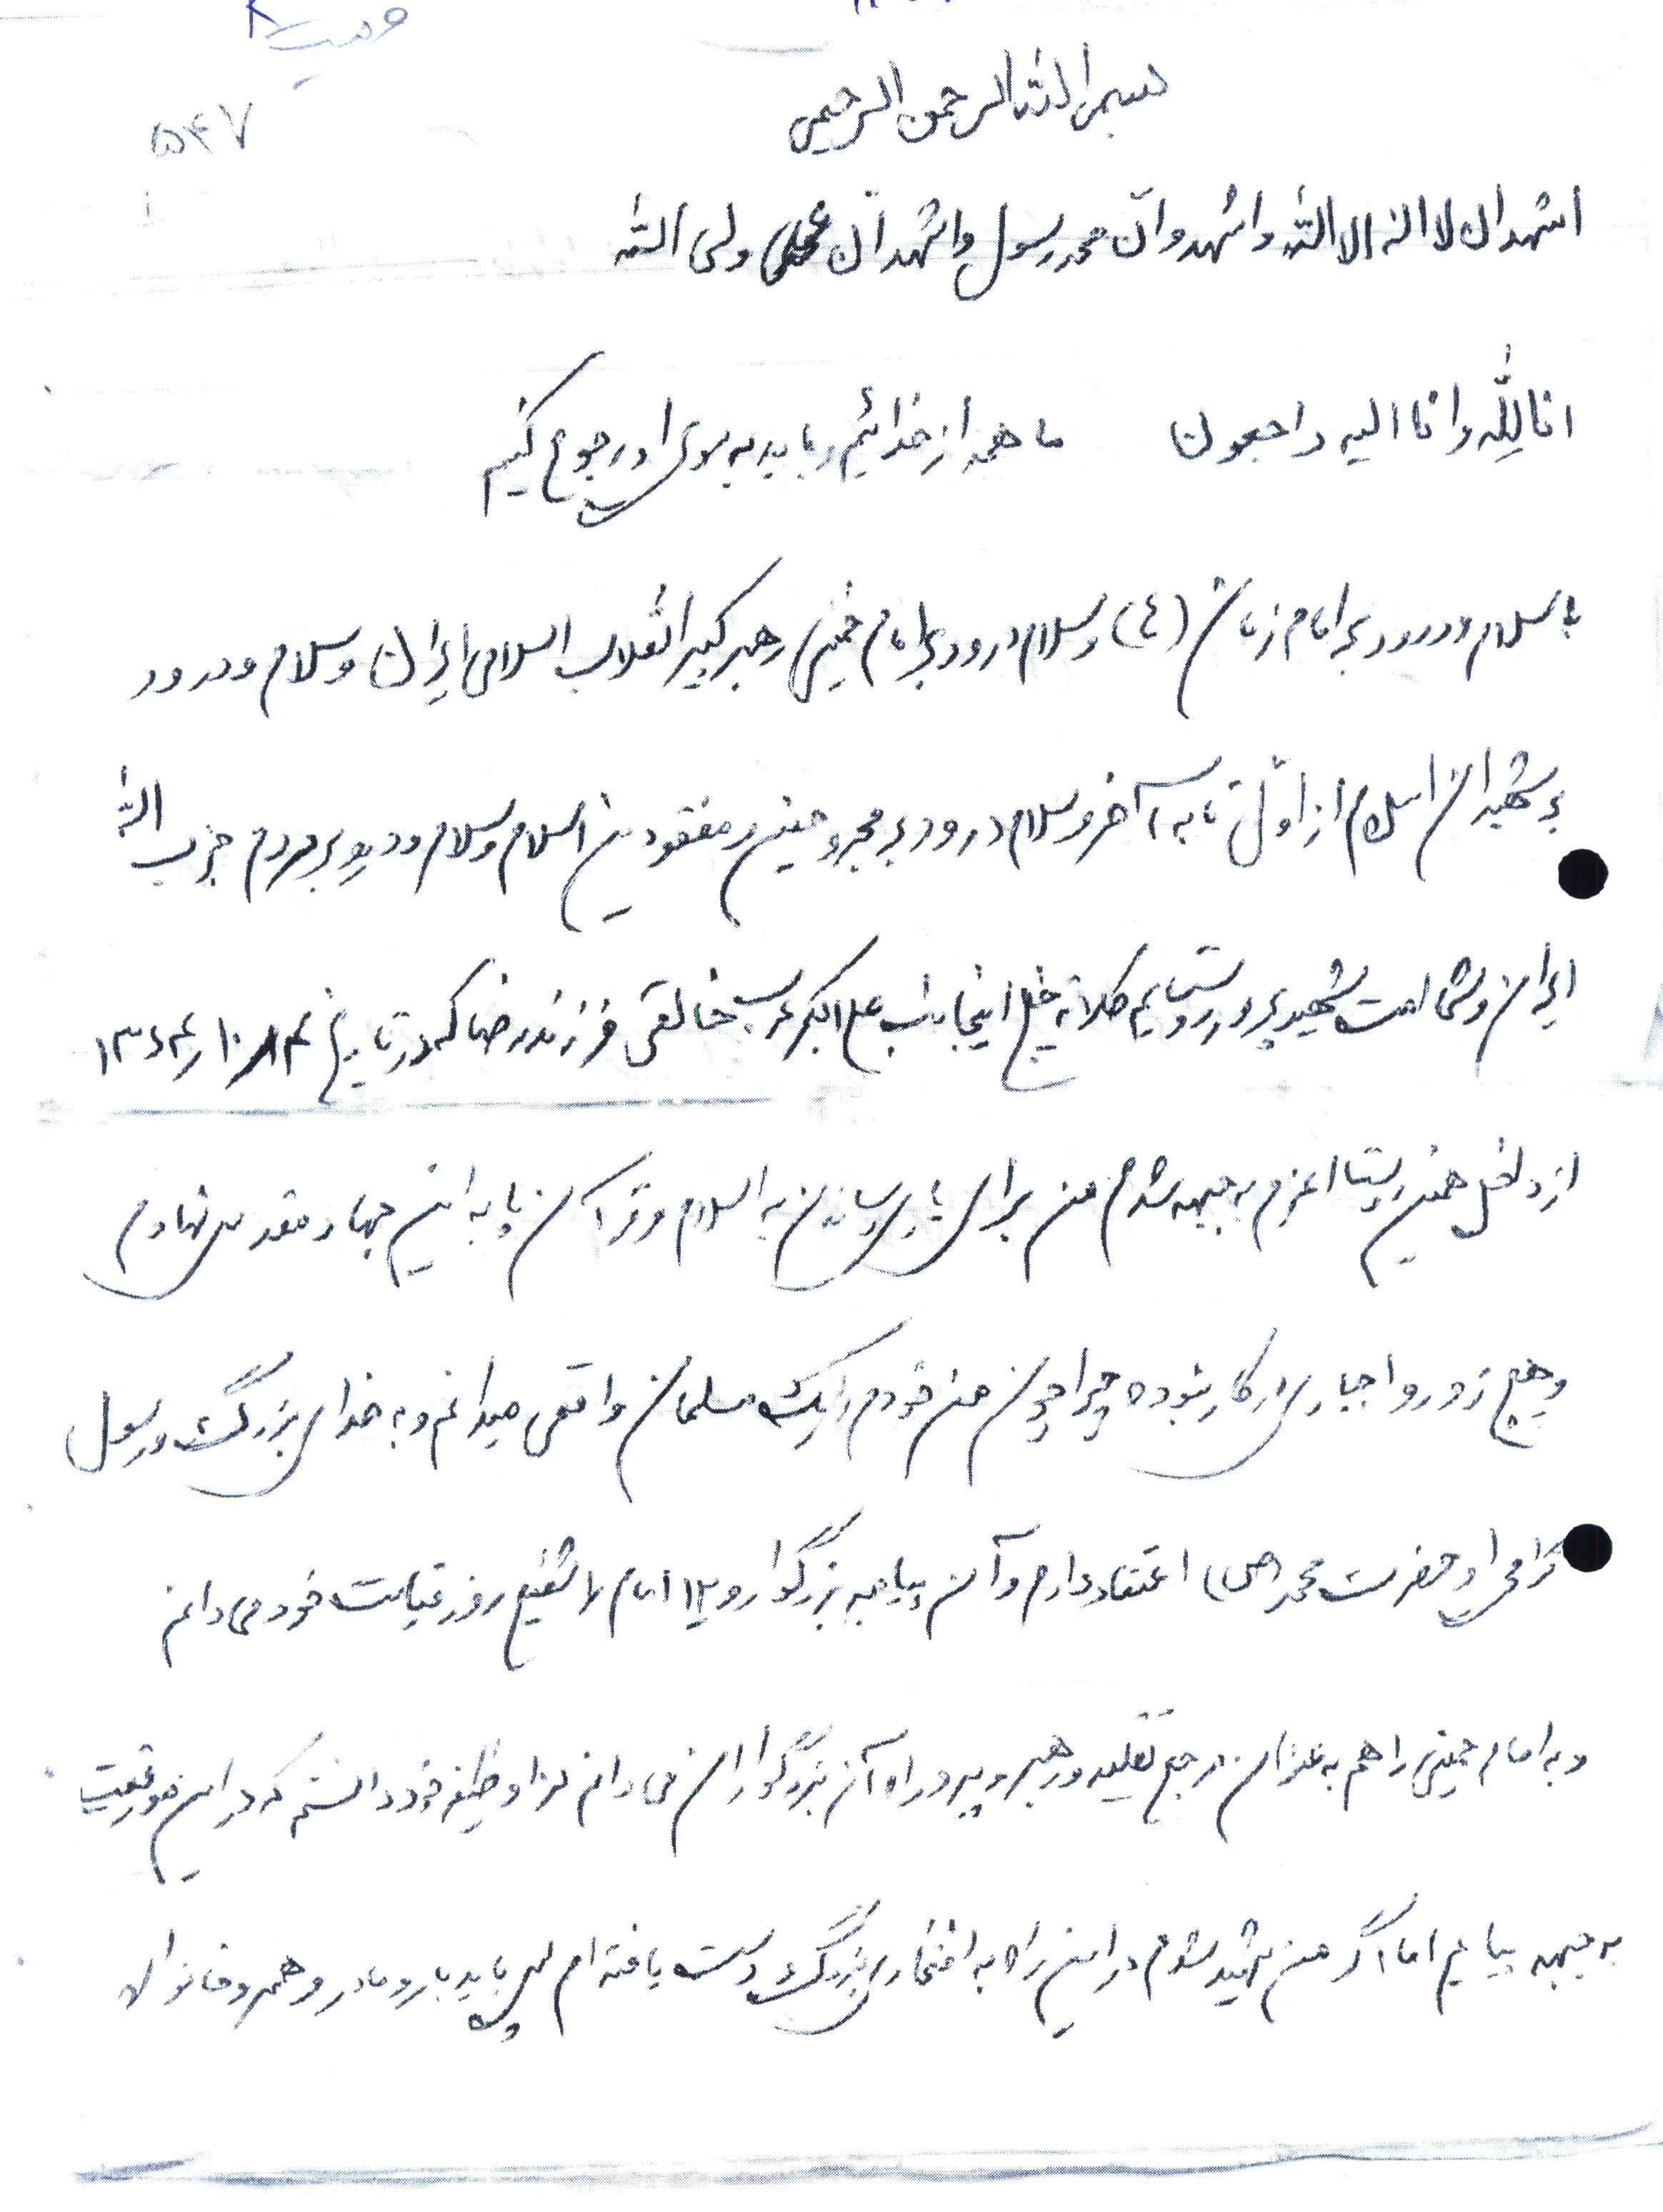 وصیت
۵۴۷
بسم الله الرحمن الرحیم
اشهد ان لا اله الا الله و اشهد و انّ محمد رسول و اشهد انّ علی ولی الله
انا لِلّٰه و انا الیه راجعون ما همه از خدائیم و باید به سوی او رجوع کنیم
با سلام و درود بر امام زمان (ع) و سلام درود بر امام خمینی رهبر کبیر انقلاب اسلامی ایران و سلام و درود
بر شهیدان اسلام از اوّل تا به آخر و سلام درود بر مجروحین و مفقودین اسلام و سلام و درود بر مردم حزب الله
ایران و شما امت شهید پرور روستایم کلاته خیج اینجانب علی اکبر عرب خالقی فرزند رضا که در تاریخ
از داخل همین روستا اعزم به جبهه شدم من برای یاری رساندن به اسلام و قرآن پا به این جهاد مقدس نهادم
و هیچ زور و اجباری در کار نبوده چرا چون من خودم را یک مسلمان واقعی میدانم و به خدای بزرگ و رسول
گرامی او حضرت محمد (ص) اعتقاد دارم و آن پیامبر بزرگوار و ۱۲ امام را شفیع روز قیامت خود می دانم
و به امام خمینی را هم به عنوان مرجع تقلید و رهبر و پیرو راه آن بزرگواران می دانم لذا وظیفه خود دانستم که در این موقعیت
به جبهه بیایم اما اگر من شهید شدم در این راه به افتخاری بزرگ دست یافته ام پس باید پدر و مادر و همسر و خانواده